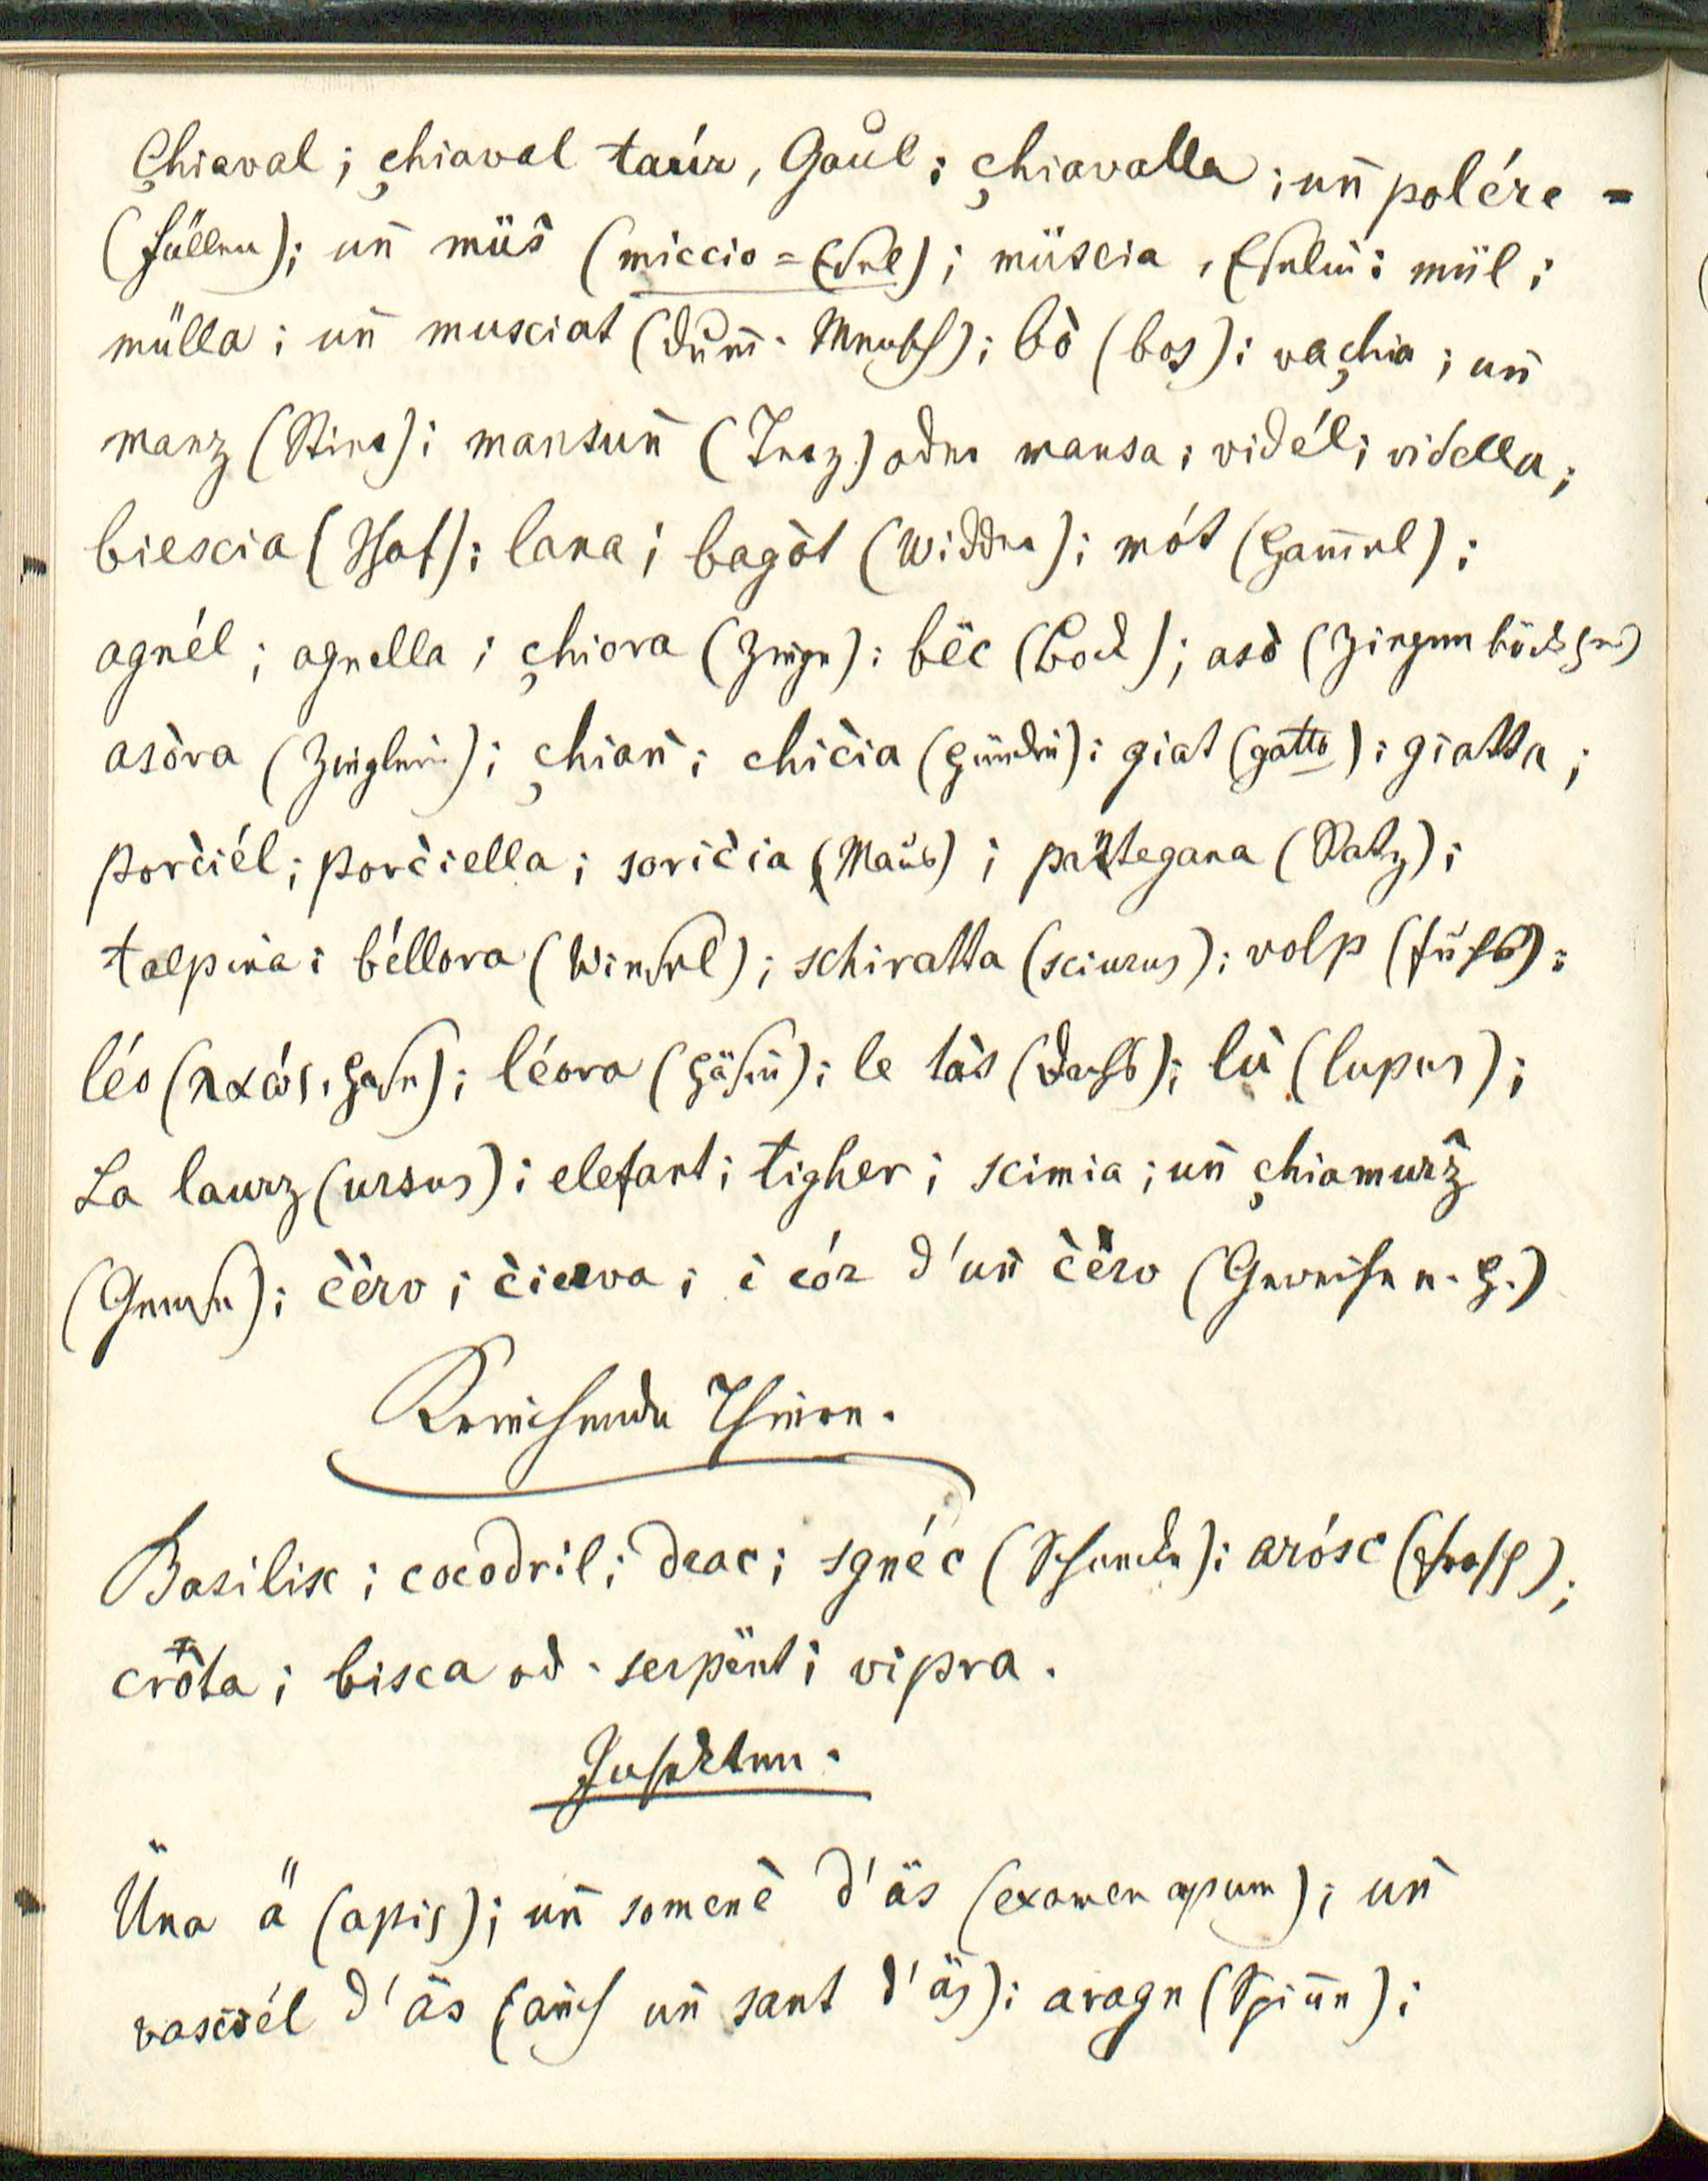 Çhiaval; çhiaval taúr, Gaul; çhiavalla; un̄ polére =
(Füllen); un̄ müs̀ (miccio = Esel); müscia, Eselin; mül;
mülla; un̄ musciat (dum̄. Mensch); bò (bos); vaçhia; un̄
manz (Stier); mansun̄ (Terz.) oder mansa; vidél; vidella;
biescia (Schaf); lana; bagòt (Widder); mót (Ham̄el);
agnél; agnella; çhiora (Ziege); bëc (Bock); asò (Ziegenböckchen)
asòra (Zieglein); çhian̄; chic̀ia (Hündin); giat (gatto); giatta;
porc̀iél; porc̀iella; soric̀ia (Maus); pantegana (Ratz);
talpina; béllora (Wiesel); schiratta (sciurus); volp (Fuchs);
léo (λαγώς, Hase); léora (Häsin); le tàs (Dachs); lù (lupus);
La laurz (ursus); elefant; tigher; scimia; un̄ çhiamurz̀
(Gemse); c̀ërv; c̀ierva; i cór d'un̄ c̀ërv (Geweihe e. H.)
Kriechende Thiere.
Basilisc; cocodril; drac; sgnéc (Schnecke); arósc (Frosch);
cròta; bisca od. serpënt; vipra.
Insekten.
Üna ä (apis); un̄ somenè d'äs (examen apum); un̄
vasciél d'äs (auch un̄ sant d'äs); aragn (Spinne);